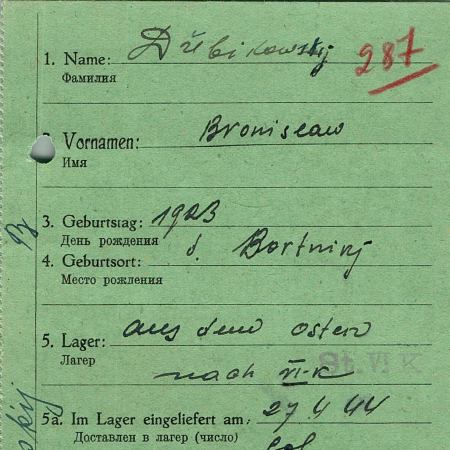 287
1. Name: Dzebikowskij
Фамилия
2. Vornamen: Bronislaw
Имя
3. Geburtstag: 1923
День рождения
4. Geburtsort: d. Bortninj
Место рождения
5. Lager: aus dem Osten
Лагер
nach VI-K
St. VI K
5a. Im Lager eingeliefert am: 27 4 44
Доставлен в лагер (число)